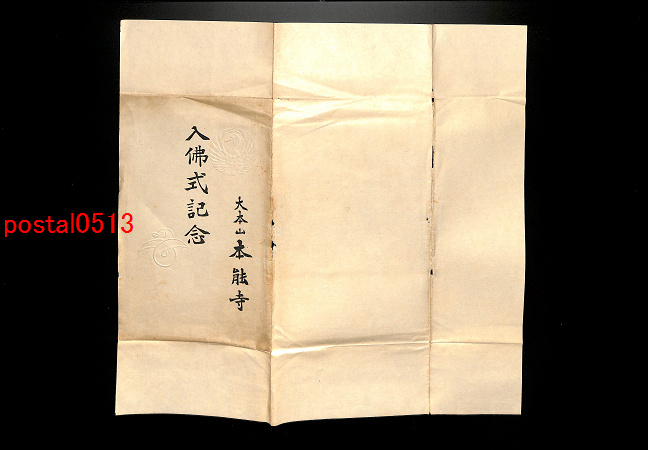 大本山 本能寺
入佛式記念
postal0513